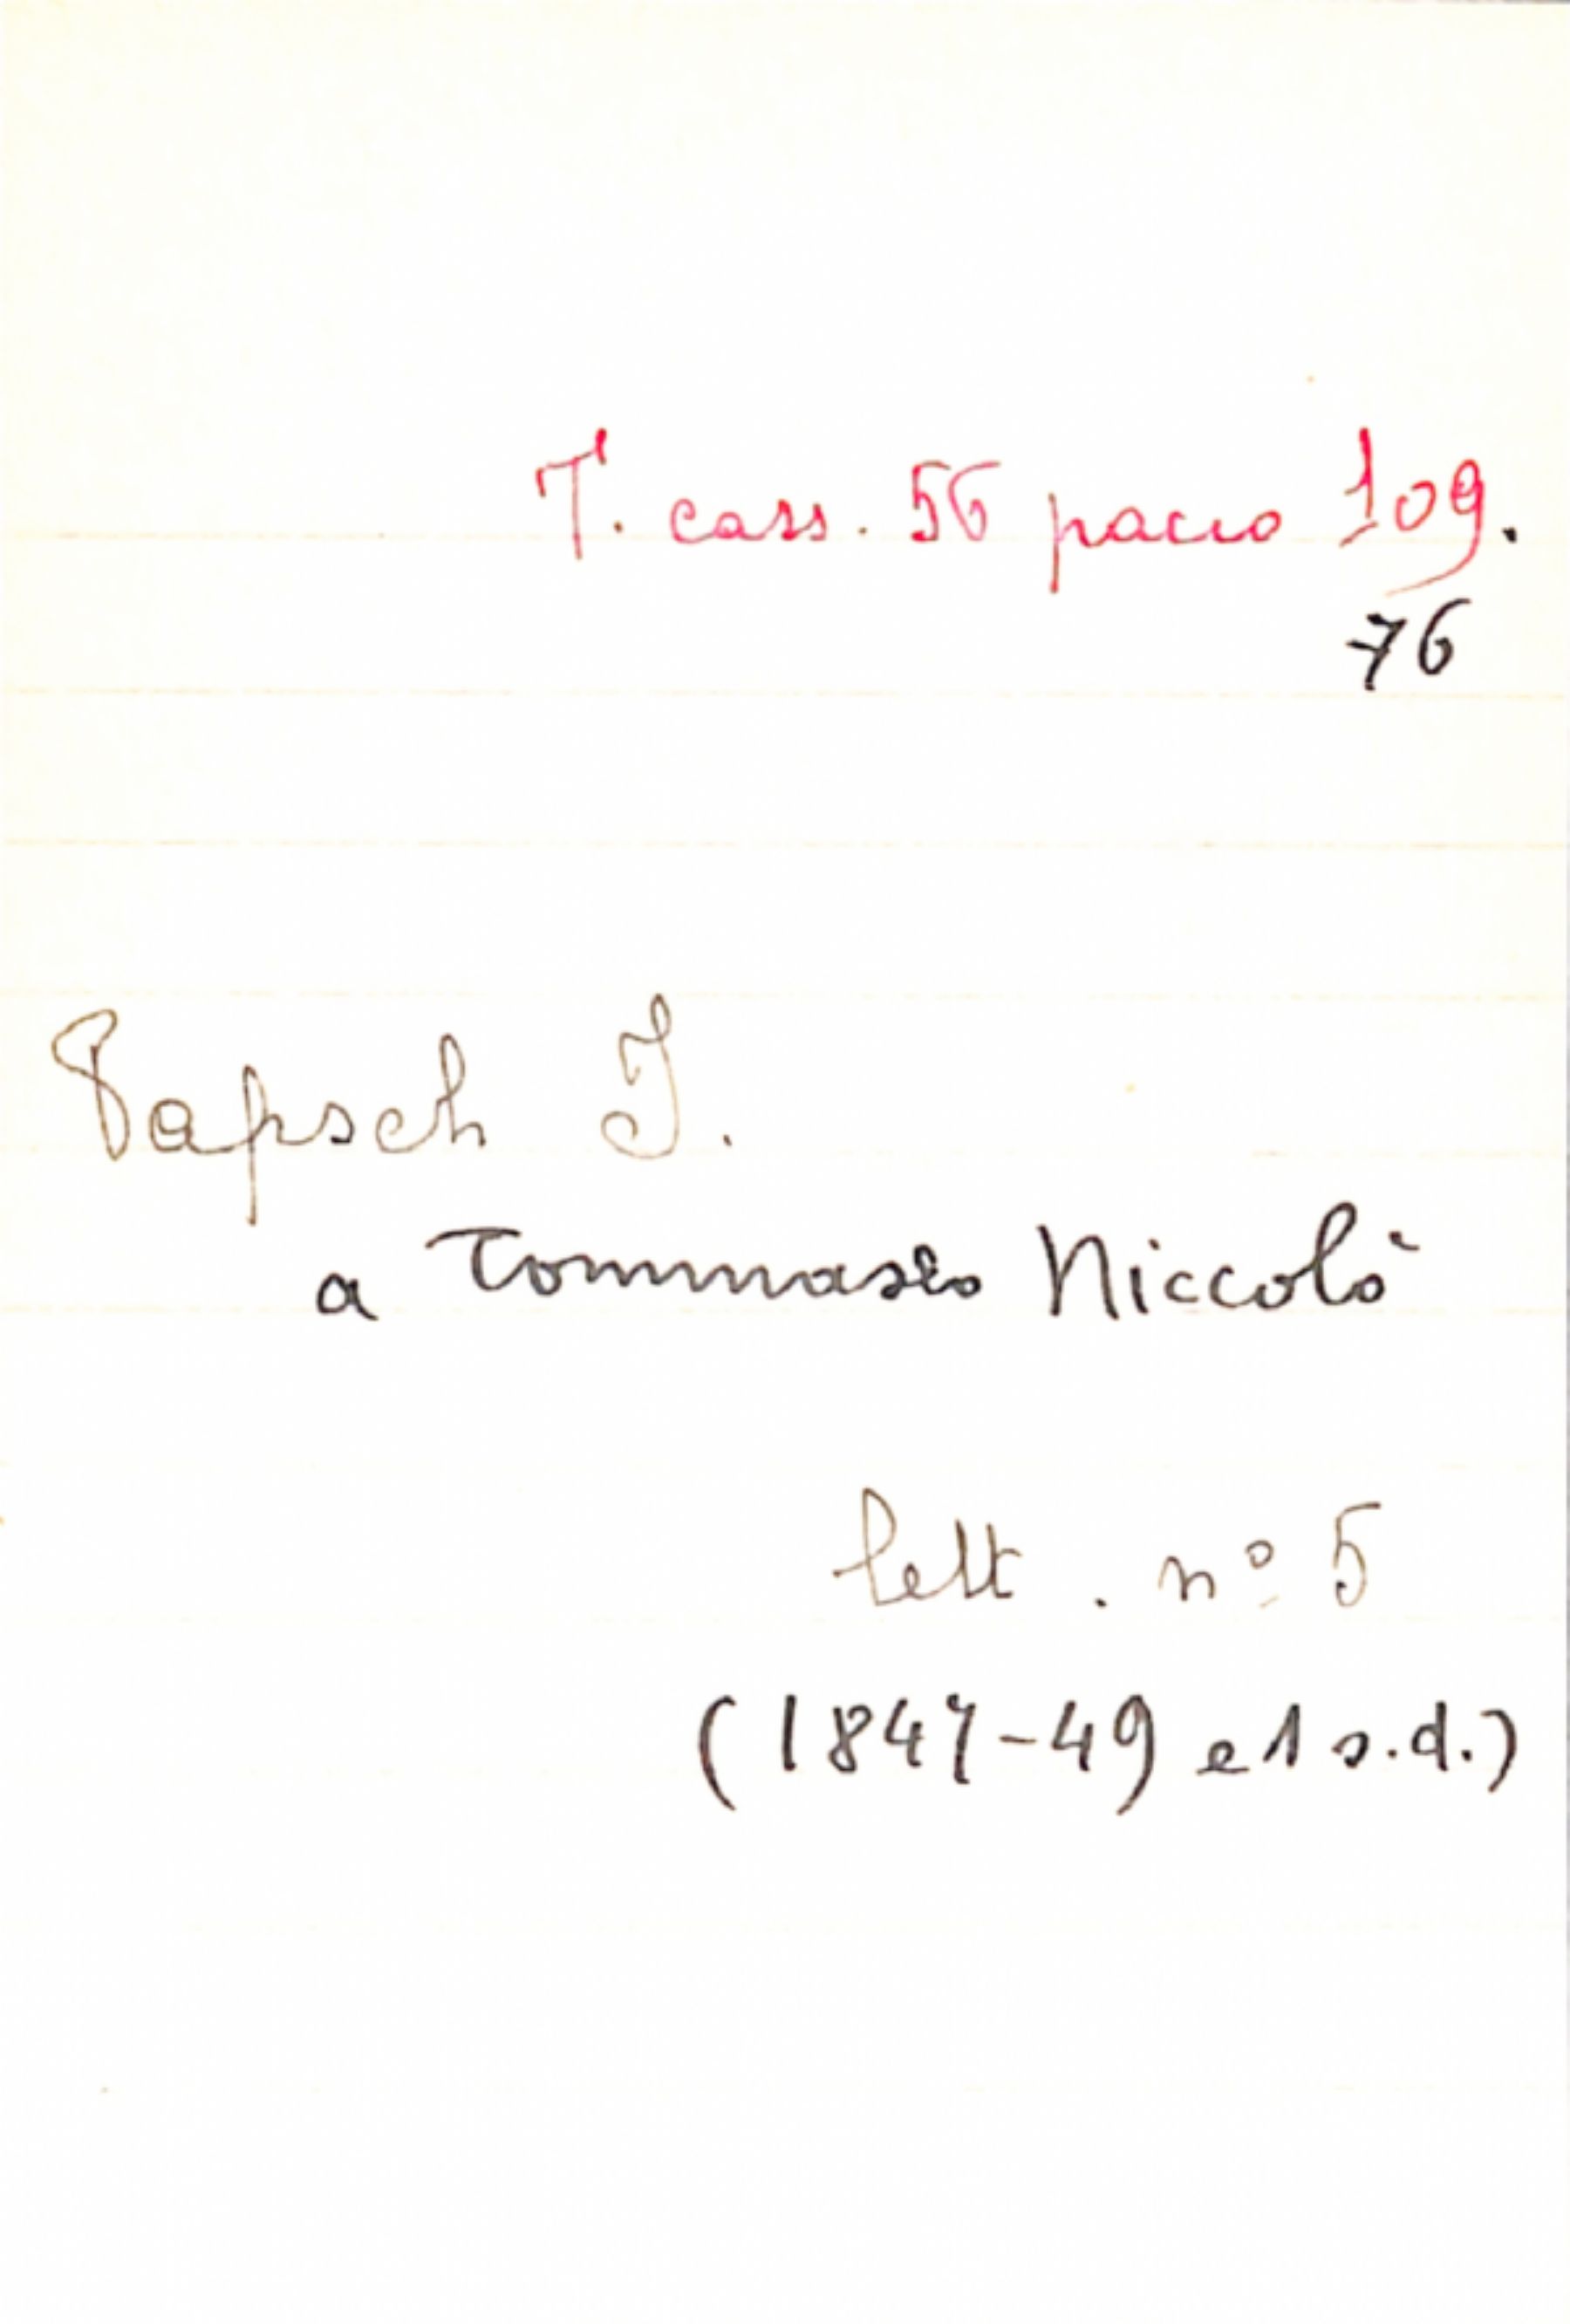 T. cass. 56 pacco 109.
76
Papsch I.
a Tommaseo Niccolò
lett. nº 5
(1847-49 e 1 s.d.)